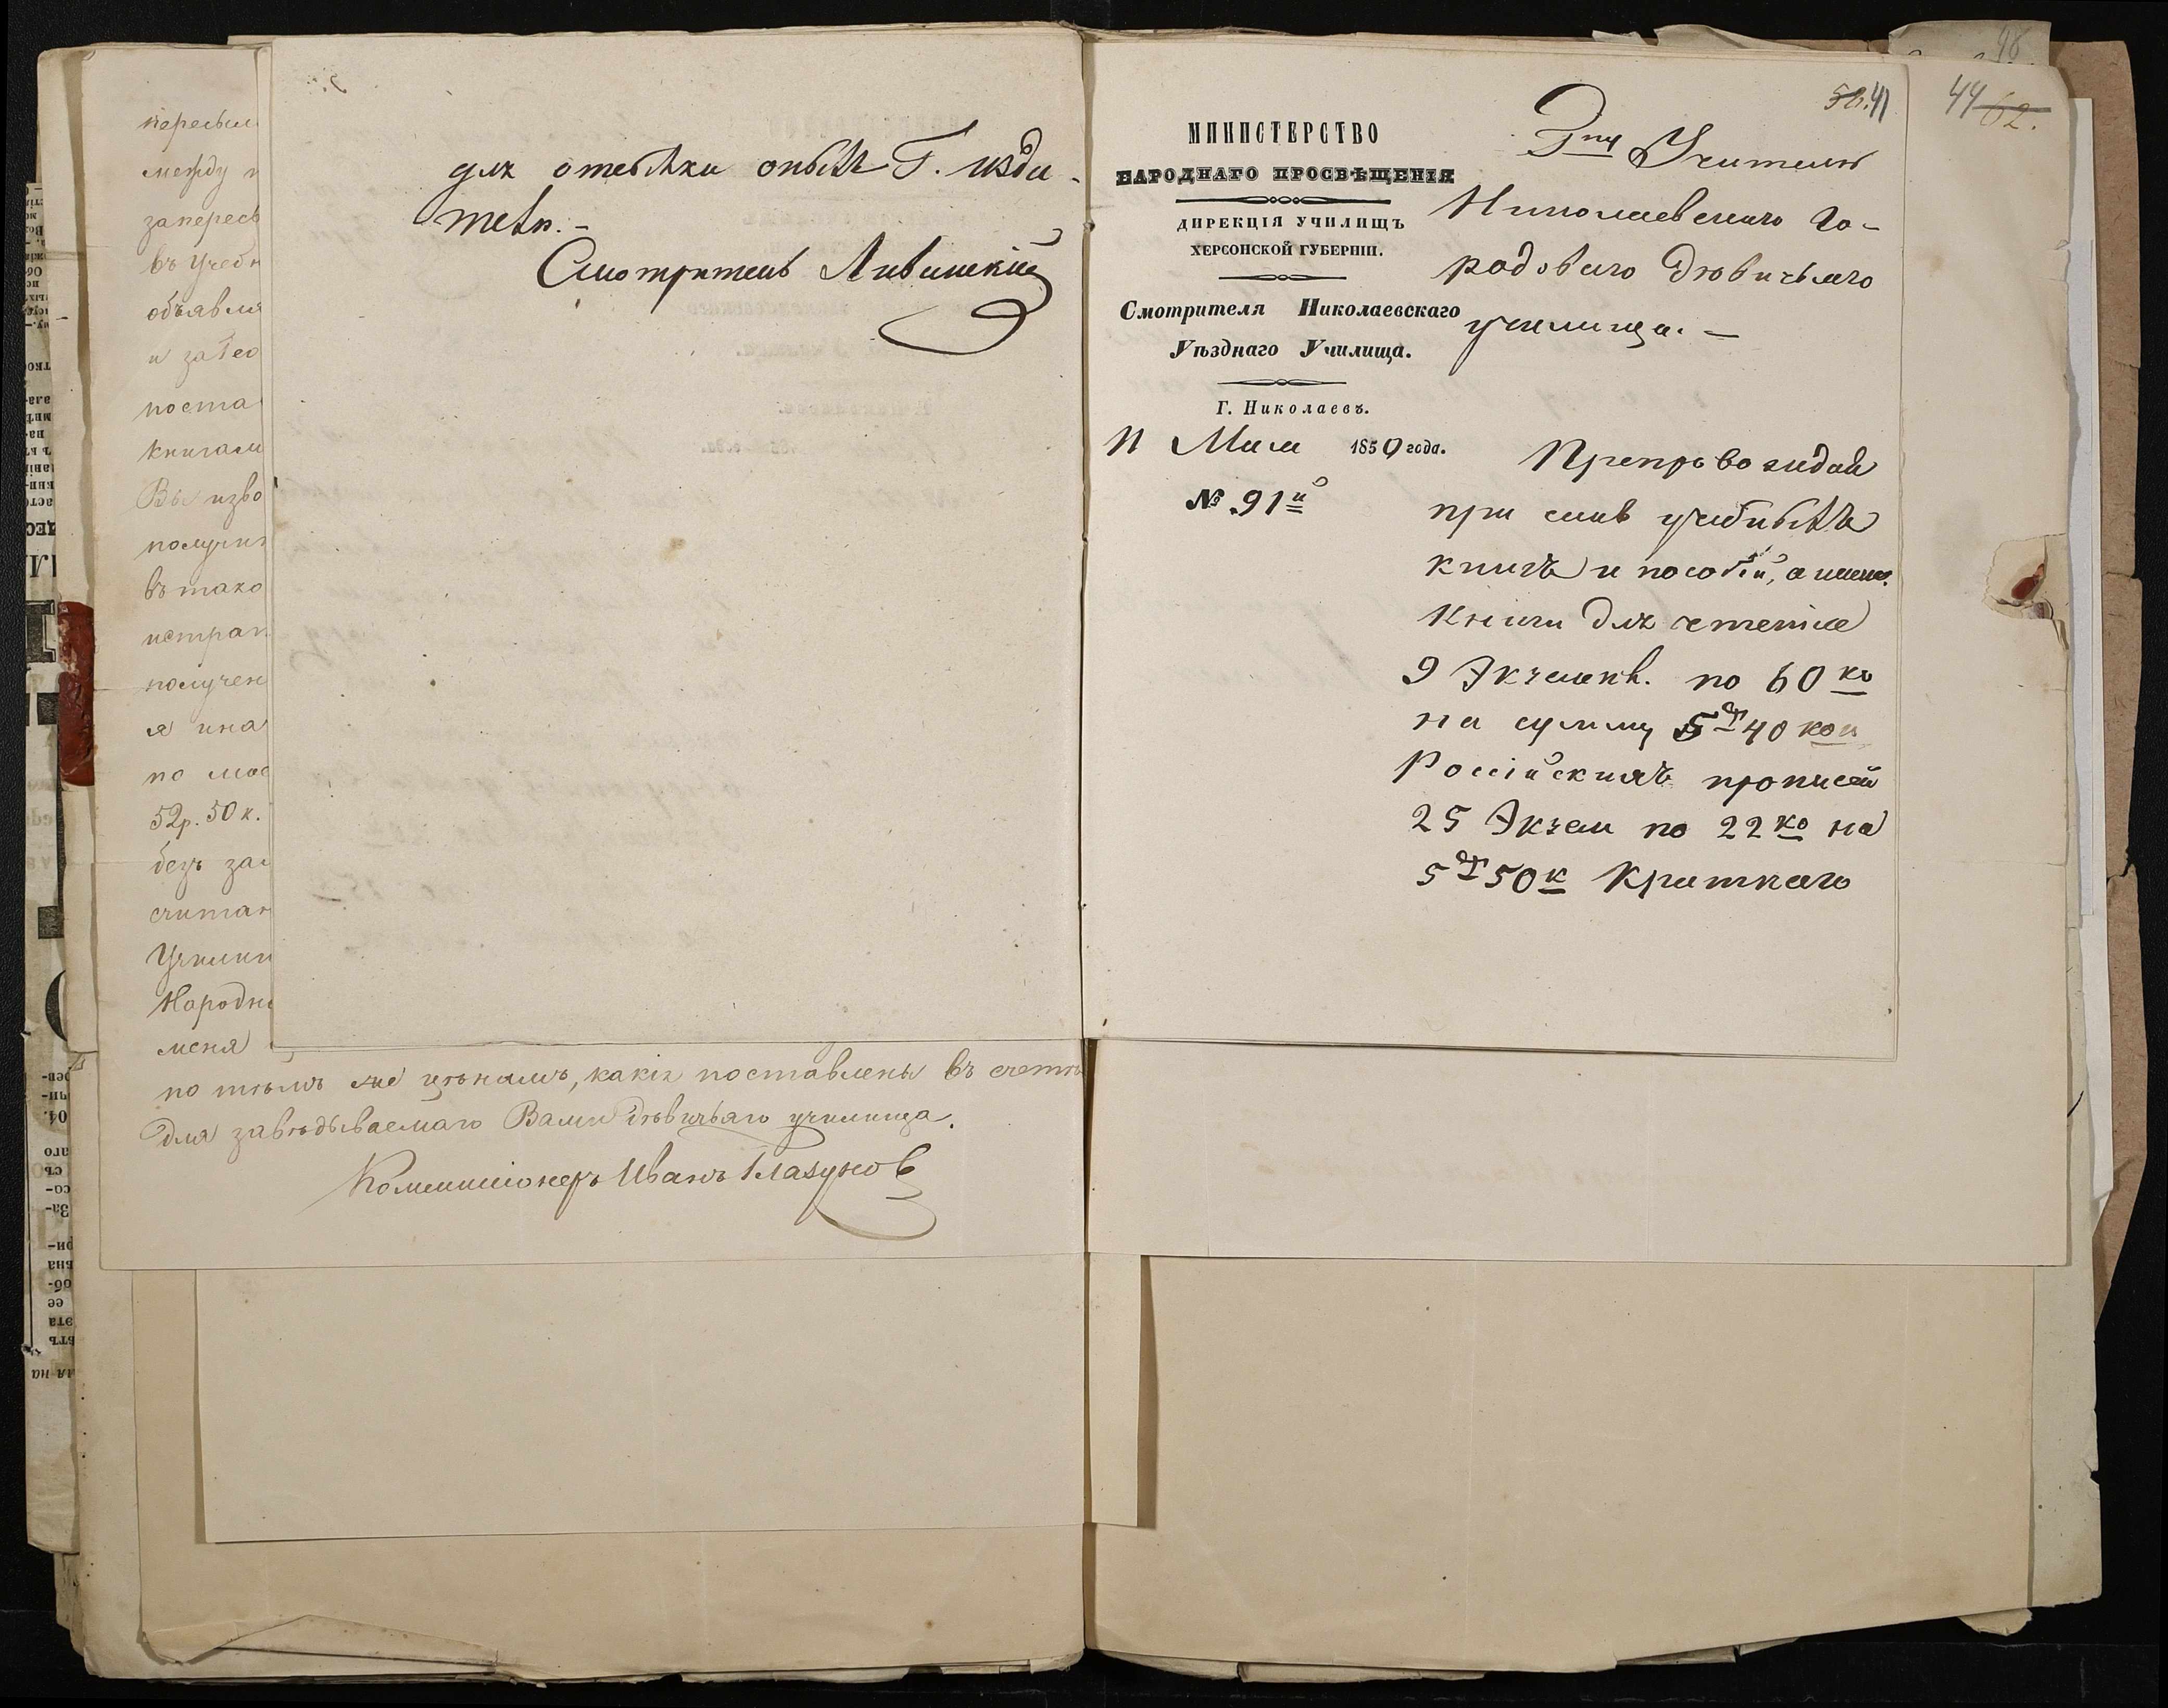 для отсылки оныхъ Г. изда-
телю.-
Смотритель Ливицкій
пересыл
между
запересы
въ Учебн
объявля
и за Гео
поста
книгами
Вы изво
получи
въ тако
истрат
получен
я ина
по мое
52р. 50 к.
безъ за
считан
Училищ
Народн
меня
по тѣмъ же цѣнамъ, какія поставлены въ счетѣ
для завѣдываемаго Вами дѣвичьяго училища.
Коммиссіонеръ Иванъ Глазуновъ
46
44 62.
41
МИНИСТЕРСТВО
НАРОДНАГО ПРОСВѢЩЕНІЯ
ДИРЕКЦІЯ УЧИЛИЩЪ
ХЕРСОНСКОЙ ГУБЕРНІИ.
Смотрителя Николаевскаго
Уѣзднаго Училища.
Г. Николаевъ.
11 Мая 1859 года.
№ 91й
Гну Учителю
Николаевскаго Го-
родоваго Дѣвичьяго
училища. —
Препровождая
при семъ учебныхъ
книгъ и пособій, а именно
Книги для чтенія
9 Экземпл. по 60 ко
на сумму 5 р 40 коп
Россійскихъ прописей
25 Экзем по 22 ко на
5 р 50 к Краткаго